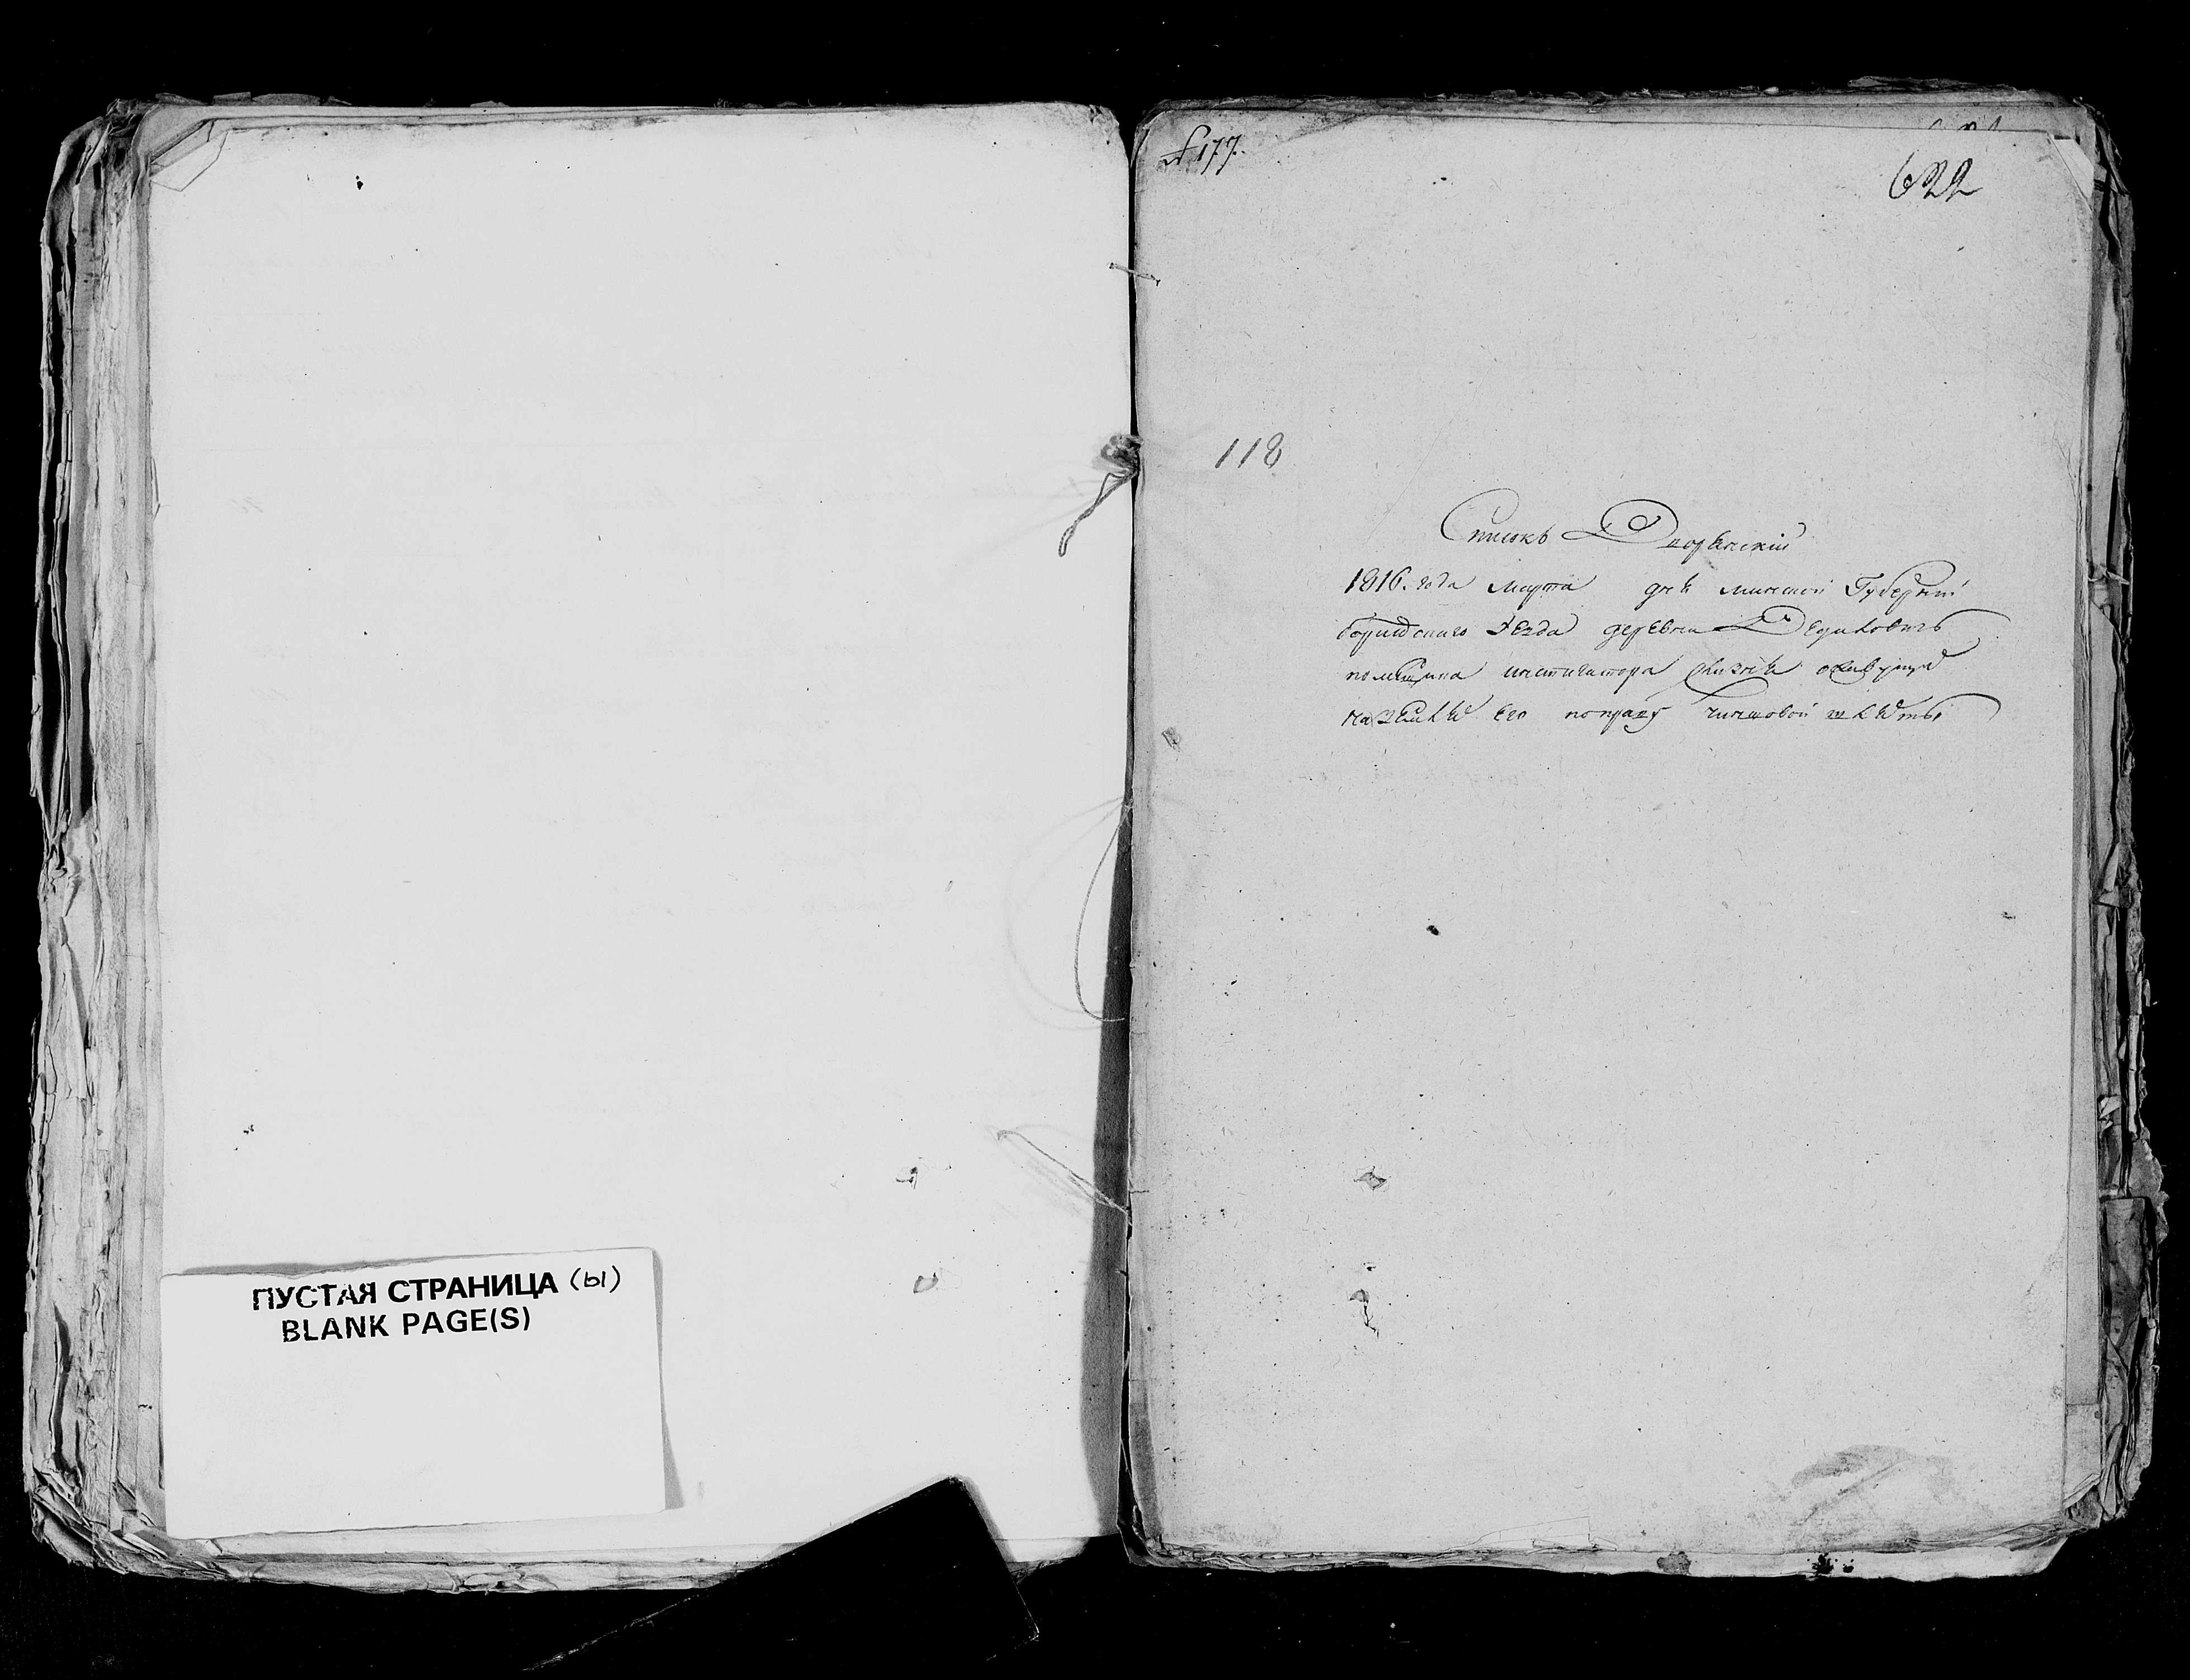 ПУСТАЯ СТРАНИЦА (ы)
BLANK PAGE(S)
№ 177.
622
118
Списокъ Дворянскій
1816. года Марта дня минской Губерніи
борисовскаго уезда деревни Дедиловичь
помещика инстигатора
на земле его по праву чиншовой шляхты